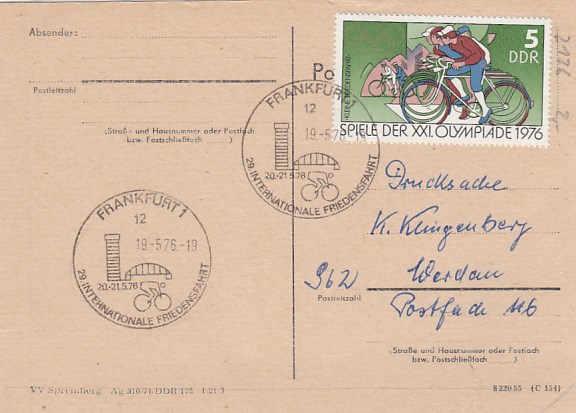 Absender:
Postleitzahl
(Straße und Hausnummer oder Postfach
bzw. Postschließfach)
Po
5
DDR
SPIELE DER XXI. OLYMPIADE 1976
FRANKFURT 1
12
19.-5.76.-19
20.-21.5.76
29. INTERNATIONALE FRIEDENSFAHRT
FRANKFURT 1
12
19.-5.76.-19
20.-21.5.76
29. INTERNATIONALE FRIEDENSFAHRT
Drucksache
K. Klingenberg
962 Werdau
Postleitzahl
Postfach 116
(Straße und Hausnummer oder Postfach
bzw. Postschließfach)
VV Spremberg Ag 310/74 DDR 175
822055 (C 154)